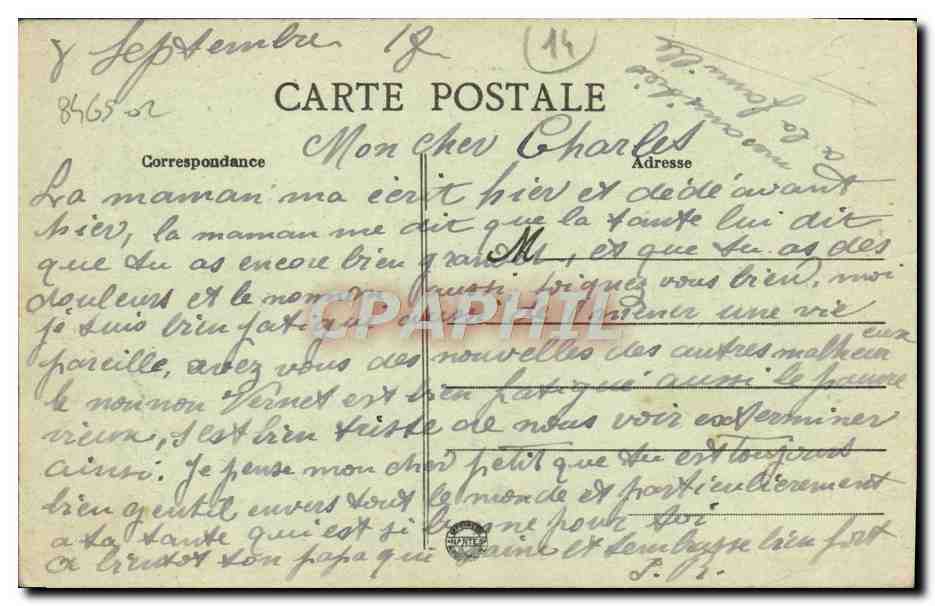 8 Septembre 18
14
8465-02
mes amitiés
a la famille
CARTE POSTALE
Mon cher Charles
Correspondance
Adresse
La maman ma écrit hier et dédé avant
hier, la maman me dit que la tante lui dit
que tu as encore bien grandit, et que tu as des
M
douleurs et le nonnon aussi, soignez vous bien, moi
je suis bien fatigué aussi de mener une vie
pareille, avez vous des nouvelles des autres malheureux
le nonnon Vernet est bien fatigué aussi le pauvre
vieux, s'est bien triste de nous voir exterminer
ainsi. Je pense mon cher petit que tu est toujours
bien gentil envers tout le monde et particulièrement
a ta tante qui est si bonne pour toi
a bientot ton papa qui t'aime et tembrasse bien fort
NANTES
CPAPHIL